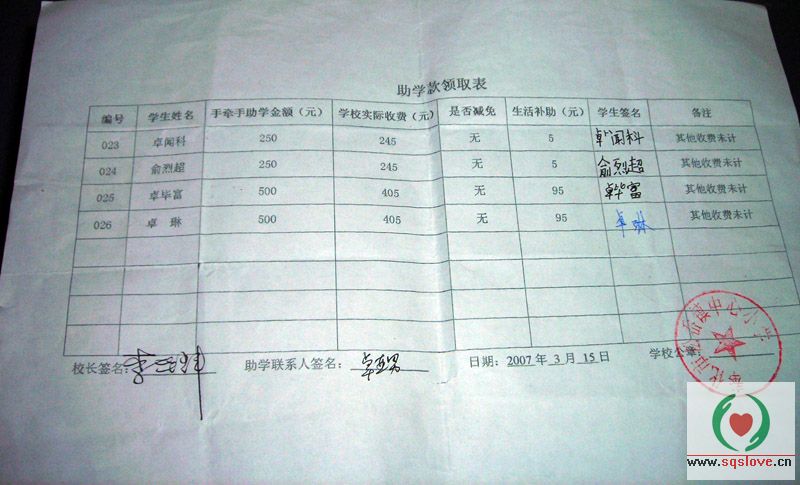 助学款领取表
编号 学生姓名 手牵手助学金额（元） 学校实际收费（元） 是否减免 生活补助（元） 学生签名 备注
023 卓闻科 250 245 无 5 卓闻科 其他收费未计
024 俞烈超 250 245 无 5 俞烈超 其他收费未计
025 卓毕富 500 405 无 95 卓毕富 其他收费未计
026 卓 琳 500 405 无 95 卓琳 其他收费未计
校长签名： 助学联系人签名： 日期：2007 年 3 月 15 日 学校公章：
中心小学
www.sqslove.cn